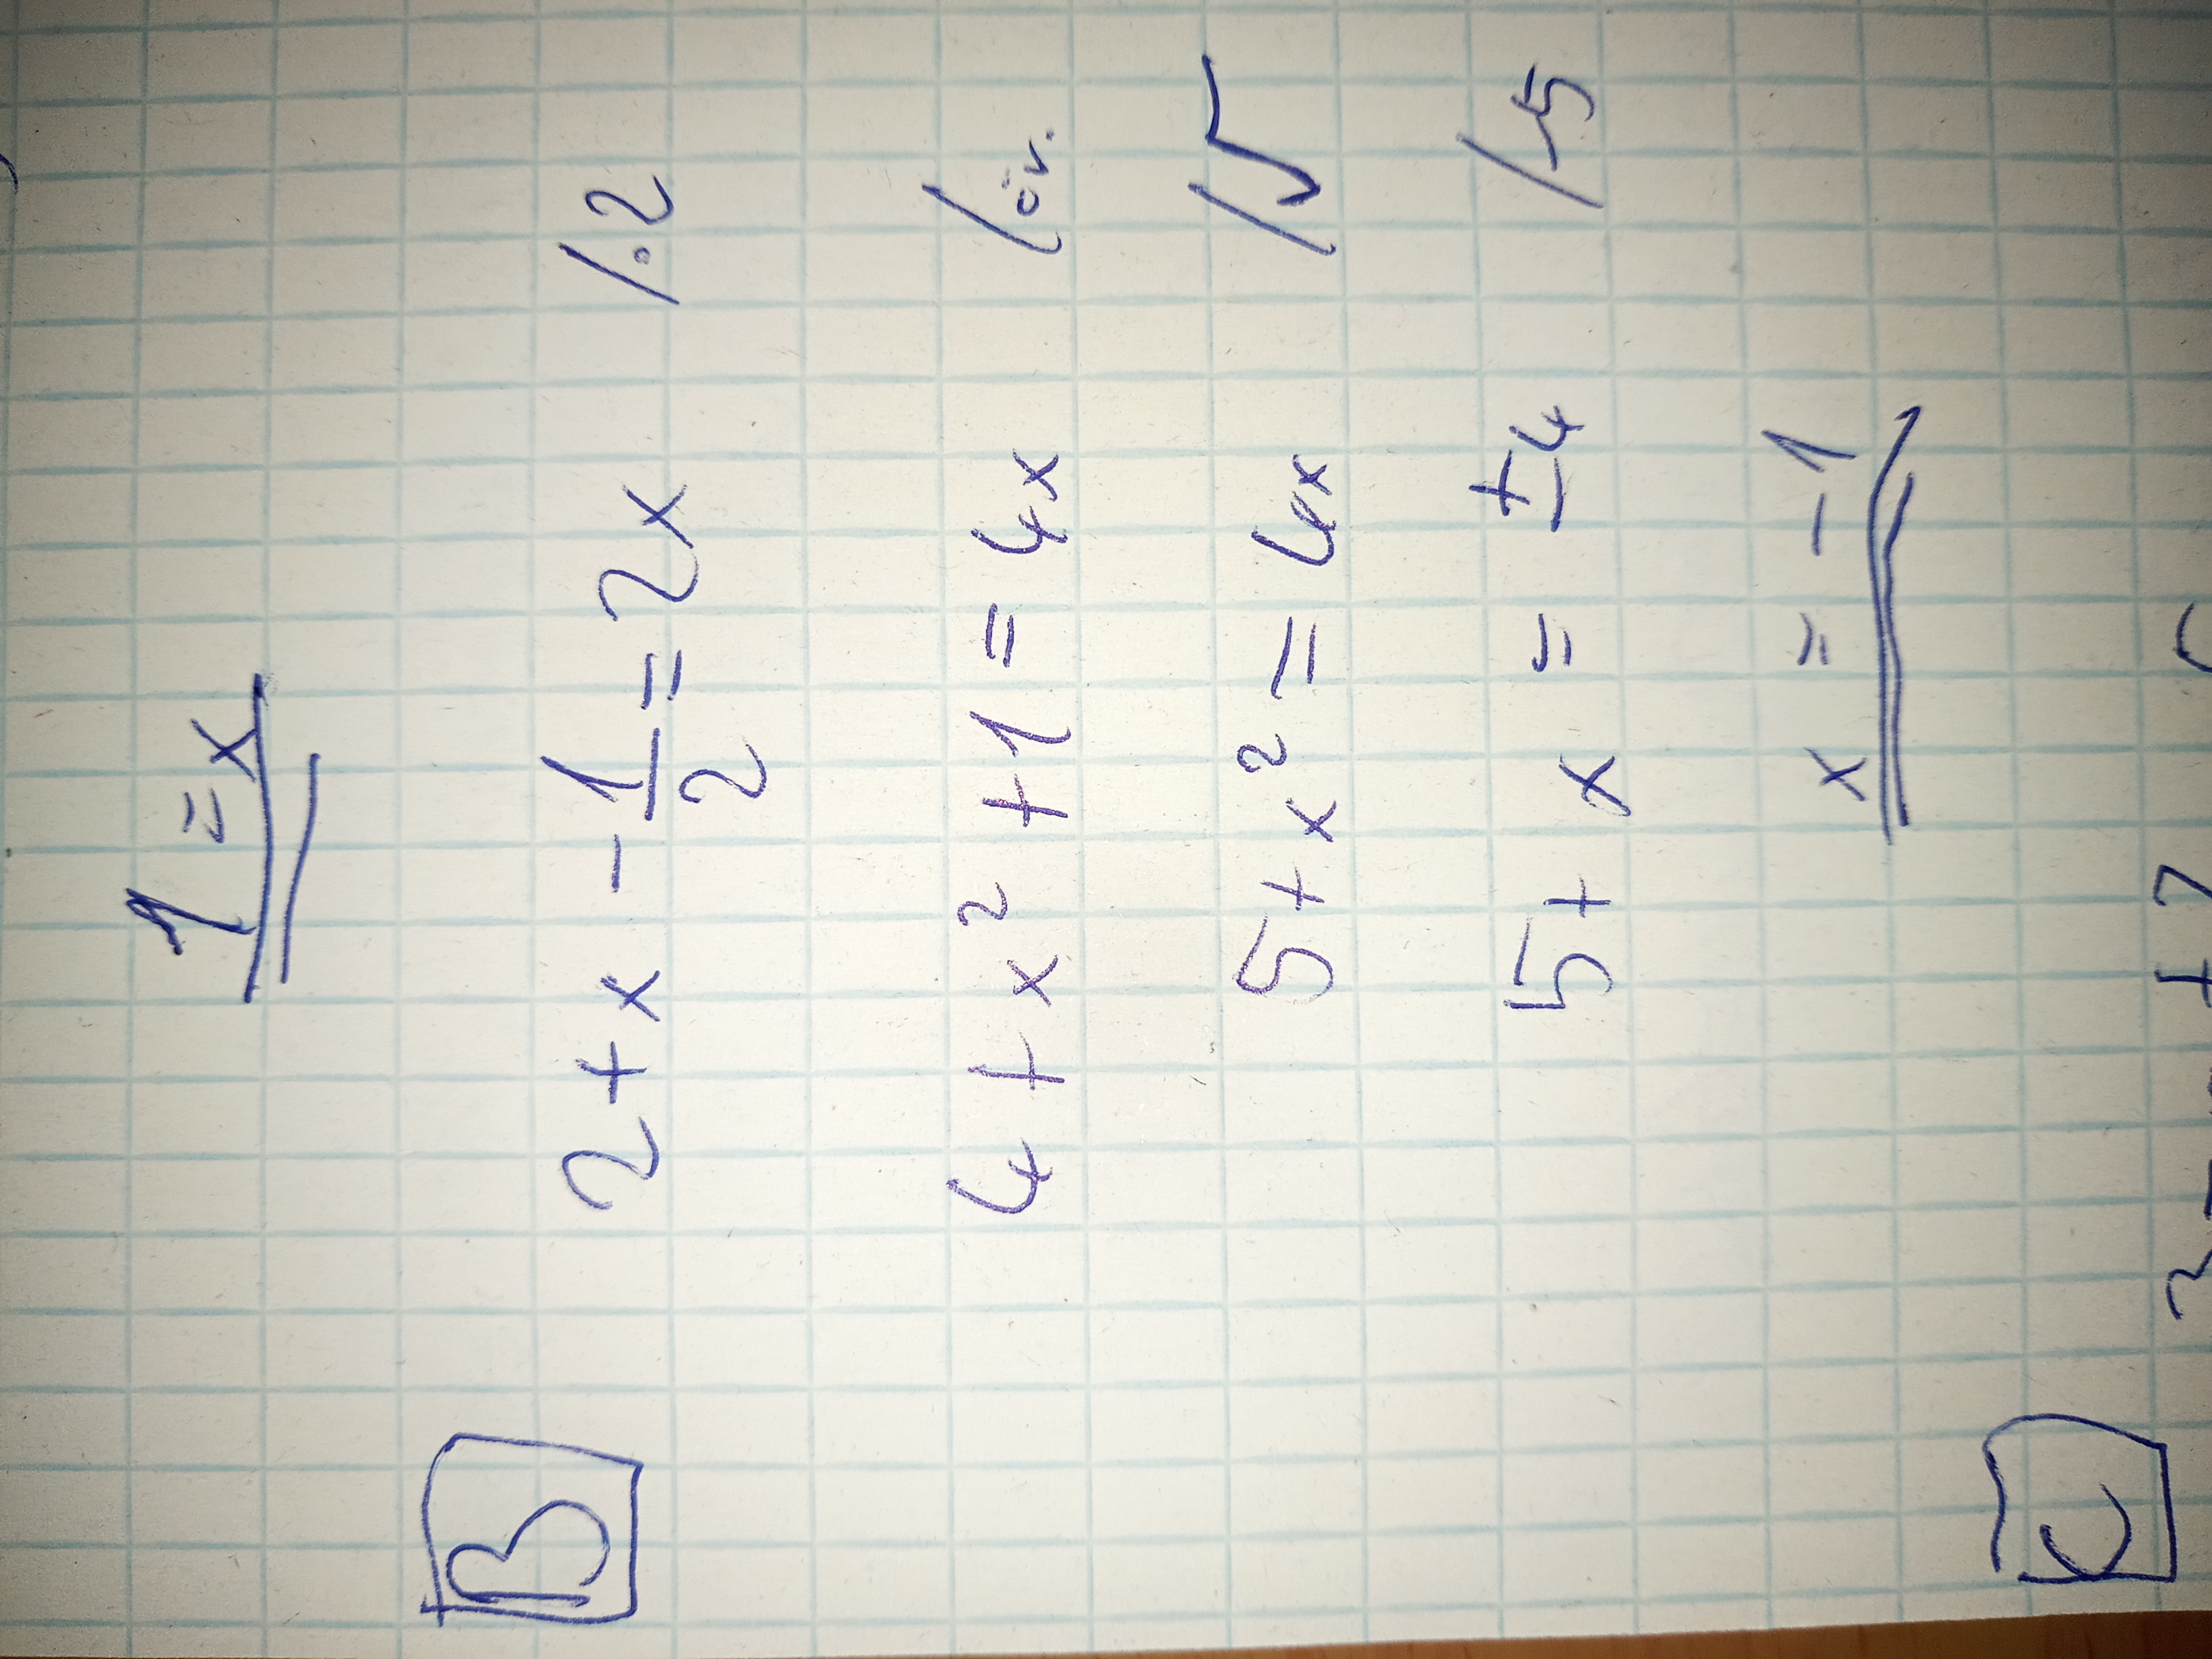 1 = x
B 2 + x - 1/2 = 2x /·2
4 + x² + 1 = 4x /öv.
5 + x² = 4x /√
5 + x = ±4 /-5
x = -1
C